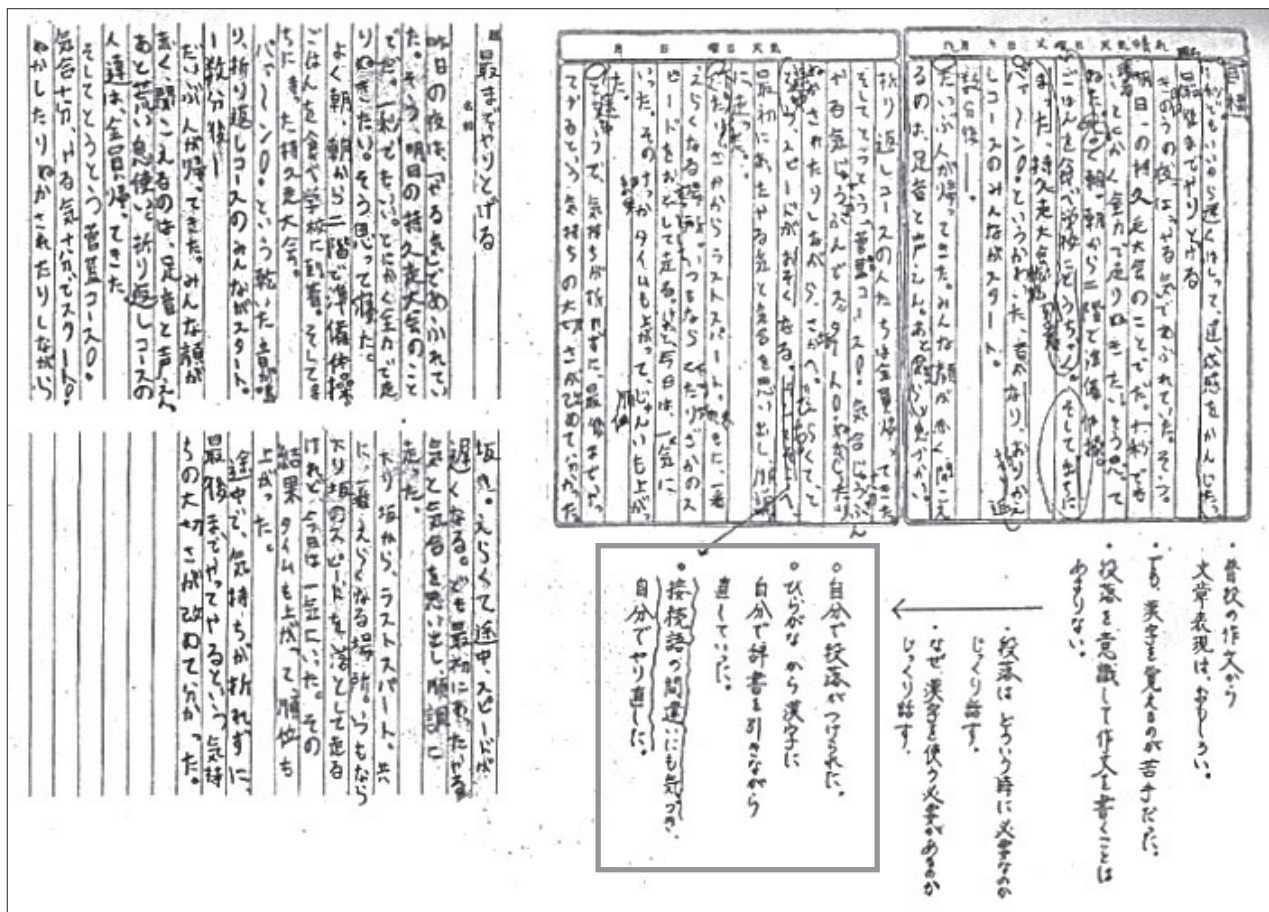 目標
一秒でもいいから速くはしって、達成感をかんじたい
最後までやりとげる
きのうの夜は、やる気であふれていた。そう、
明日の持久走大会のことでだ。一秒でも
いい、とにかく全力で走りぬきたい。そう思って
ねた。よく朝、朝から二階で準備体操。
ごはんを食べ学校にとうちゃく。そして
まった、持久走大会
パァーン!!というかわいた音がなり、おりかえ
しコースのみんながスタート。
数分後――
だいぶ人が帰ってきた。みんな顔が赤く、聞こえ
るのは、足音と声えん。あと荒い息づかい。
折り返しコースの人たちは全員帰ってきた
そしてとうとう菅蓋コース!!気合じゅうぶん
やる気じゅうぶんでスタート!!ぬかしたり
ぬかされたりしながら、さかへ。えらくて、と
中、スピードがおそくなる。
最初にあったやる気と気合を思い出し、順調
に走った。
くだりざかからラストスパート。ともに、一番
えらくなる場所。いつもならくだりざかのス
ピードをおとして走るけれど、今日は一気に
いった。そのけっかタイムも上がって、じゅんいも上がっ
た。
途中で、気持ちが折れずに、最後までやっ
てやるという気持ちの大切さが改めて分かった。
・普段の作文から
文章表現は、おもしろい。
・でも、漢字を覚えるのが苦手だった。
・段落を意識して作文を書くことは
あまりない。
・段落は どういう時に必要なのか
じっくり話す。
・なぜ、漢字を使う必要があるのか
じっくり話す。
○自分で段落がつけられた。
○ひらがなから漢字に
自分で辞書を引きながら
直していった。
○接続語の間違いにも気づき、
自分でやり直した。
題 最後までやりとげる
名前
昨日の夜は、やる気であふれてい
た。そう、明日の持久走大会のこと
でだ。一秒でもいい、とにかく全力で走
りぬきたい。そう思って寝た。
よく朝、朝から二階で準備体操。
ごはんを食べ学校に到着。そしてま
ちにまった持久走大会。
パァーン!!という乾いた音が鳴
り、折り返しコースのみんながスタート。
―数分後―
だいぶんが帰ってきた。みんな顔が
赤く、聞こえるのは、足音と声えん。
あと荒い息使い。折り返しコースの
人達は全員帰ってきた。
そしてとうとう菅蓋コース!!
気合十分、やる気十分でスタート!!
ぬかしたりぬかされたりしながら
坂へ。えらくて途中、スピードが
遅くなる。でも最初にあったやる
気と気合を思い出し、順調に
走った。
下り坂から、ラストスパート。共
に、一番えらくなる場所。いつもなら
下り坂のスピードを落として走る
けれど、今日は一気にいった。その
結果タイムも上がって、順位も
上がった。
途中で、気持ちが折れずに、
最後までやってやるという気持
ちの大切さが改めて分かった。